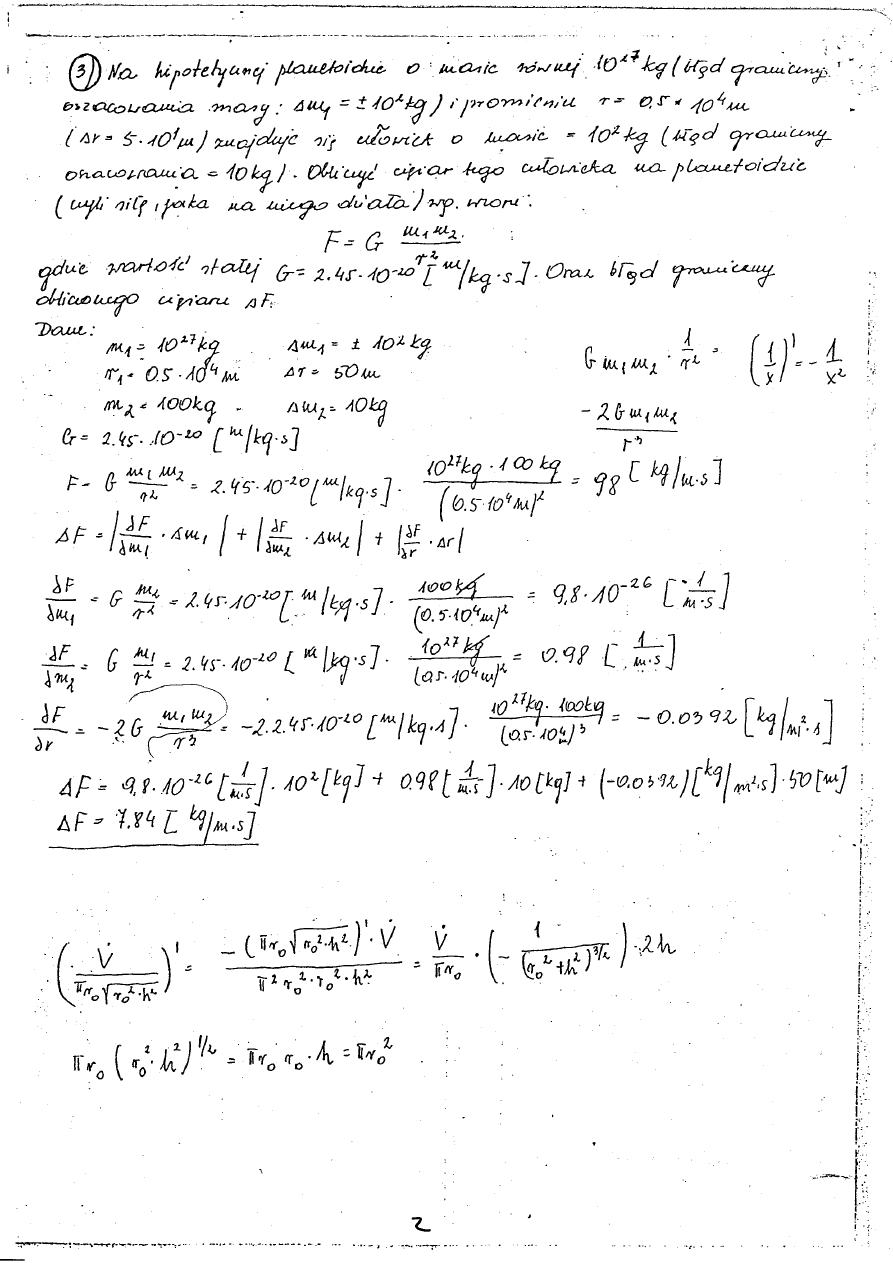 3) Na hipotetycznej planetoidzie o masie równej 10²⁷ kg (błąd graniczny
oszacowania masy: Δm₁ = ± 10² kg) i promieniu r = 0.5 * 10⁴ m
(Δr = 5·10¹ m) znajduje się człowiek o masie = 10² kg (błąd graniczny
oszacowania = 10 kg). Obliczyć ciężar tego człowieka na planetoidzie
(czyli siłę, jaka na niego działa) wg. wzoru:
F = G m₁m₂ / r²
gdzie wartość stałej G = 2.45·10⁻²⁰ [m/kg·s]. Oraz błąd graniczny
obliczonego ciężaru ΔF.
Dane:
m₁ = 10²⁷ kg Δm₁ = ± 10² kg
r₁ = 0.5·10⁴ m Δr = 50 m
m₂ = 100 kg - Δm₂ = 10 kg
G = 2.45·10⁻²⁰ [m/kg·s]
G m₁m₂ · 1/r² = (1/x)' = - 1/x²
- 2Gm₁m₂ / r³
F = G m₁m₂/r² = 2.45·10⁻²⁰ [m/kg·s] · 10²⁷kg · 100kg / (0.5·10⁴m)² = 98 [kg/m·s]
ΔF = |∂F/∂m₁ · Δm₁| + |∂F/∂m₂ · Δm₂| + |∂F/∂r · Δr|
∂F/∂m₁ = G m₂/r² = 2.45·10⁻²⁰ [m/kg·s] · 100kg / (0.5·10⁴m)² = 9.8·10⁻²⁶ [1/m·s]
∂F/∂m₂ = G m₁/r² = 2.45·10⁻²⁰ [m/kg·s] · 10²⁷kg / (0.5·10⁴m)² = 0.98 [1/m·s]
∂F/∂r = -2G m₁m₂/r³ = -2·2.45·10⁻²⁰ [m/kg·s] · 10²⁷kg · 100kg / (0.5·10⁴m)³ = -0.0392 [kg/m²·s]
ΔF = 9.8·10⁻²⁶ [1/m·s] · 10² [kg] + 0.98 [1/m·s] · 10 [kg] + (-0.0392) [kg/m²·s] · 50 [m]
ΔF = 7.84 [kg/m·s]
(V̇ / πr₀√r₀²·h²)' = -(πr₀√r₀²·h²)' · V̇ / π²r₀²·r₀²·h² = V̇/πr₀ · (- 1/(r₀²+h²)^3/2) · 2h
πr₀(r₀²·h²)^1/2 = πr₀ r₀·h = πr₀²
2